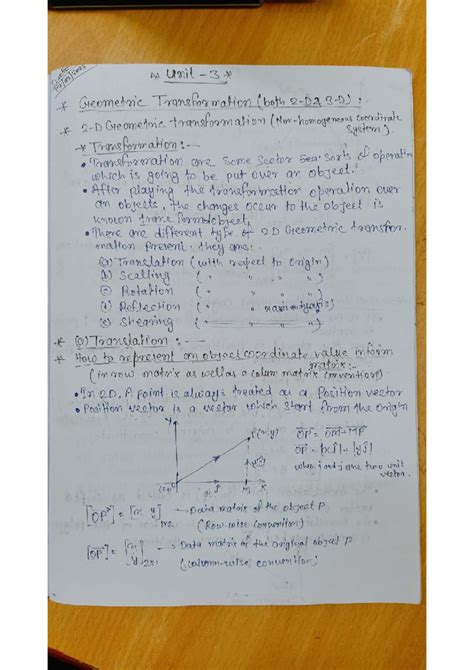 * Unit - 3 *
* Geometric Transformation (both 2-D & 3-D) :-
* 2-D Geometric transformation (Non-homogeneous coordinate
System).
* Transformation :-
• Transformation are some sorts of operation
which is going to be put over an object.
• After playing the transformation operation over
an objects, the changes occur to the object is
known transformed object.
• There are different type of 2D Geometric transfor-
mation present. they are:
(a) Translation (with respect to Origin)
(b) Scalling ( " " " " )
(c) Rotation ( " " " " )
(d) Reflection ( "
(e) Shearing (
* (a) Translation :-
* How to represent an object coordinate value in form
matrix:-
(in row matrix as well as a colum matrix convention)
• In 2D, A point is always treated as a Position vector
• Position vector is a vector which start from the origin
Y
P(x,y)
OP = OM + MP
M X
when i and j are two unit
vector.
[OP] = [x y] 1x2 → Data matrix of the object P
(Row-wise convention)
[OP] = [x y] 2x1 → Data matrix of the original object P
(column-wise) convention)